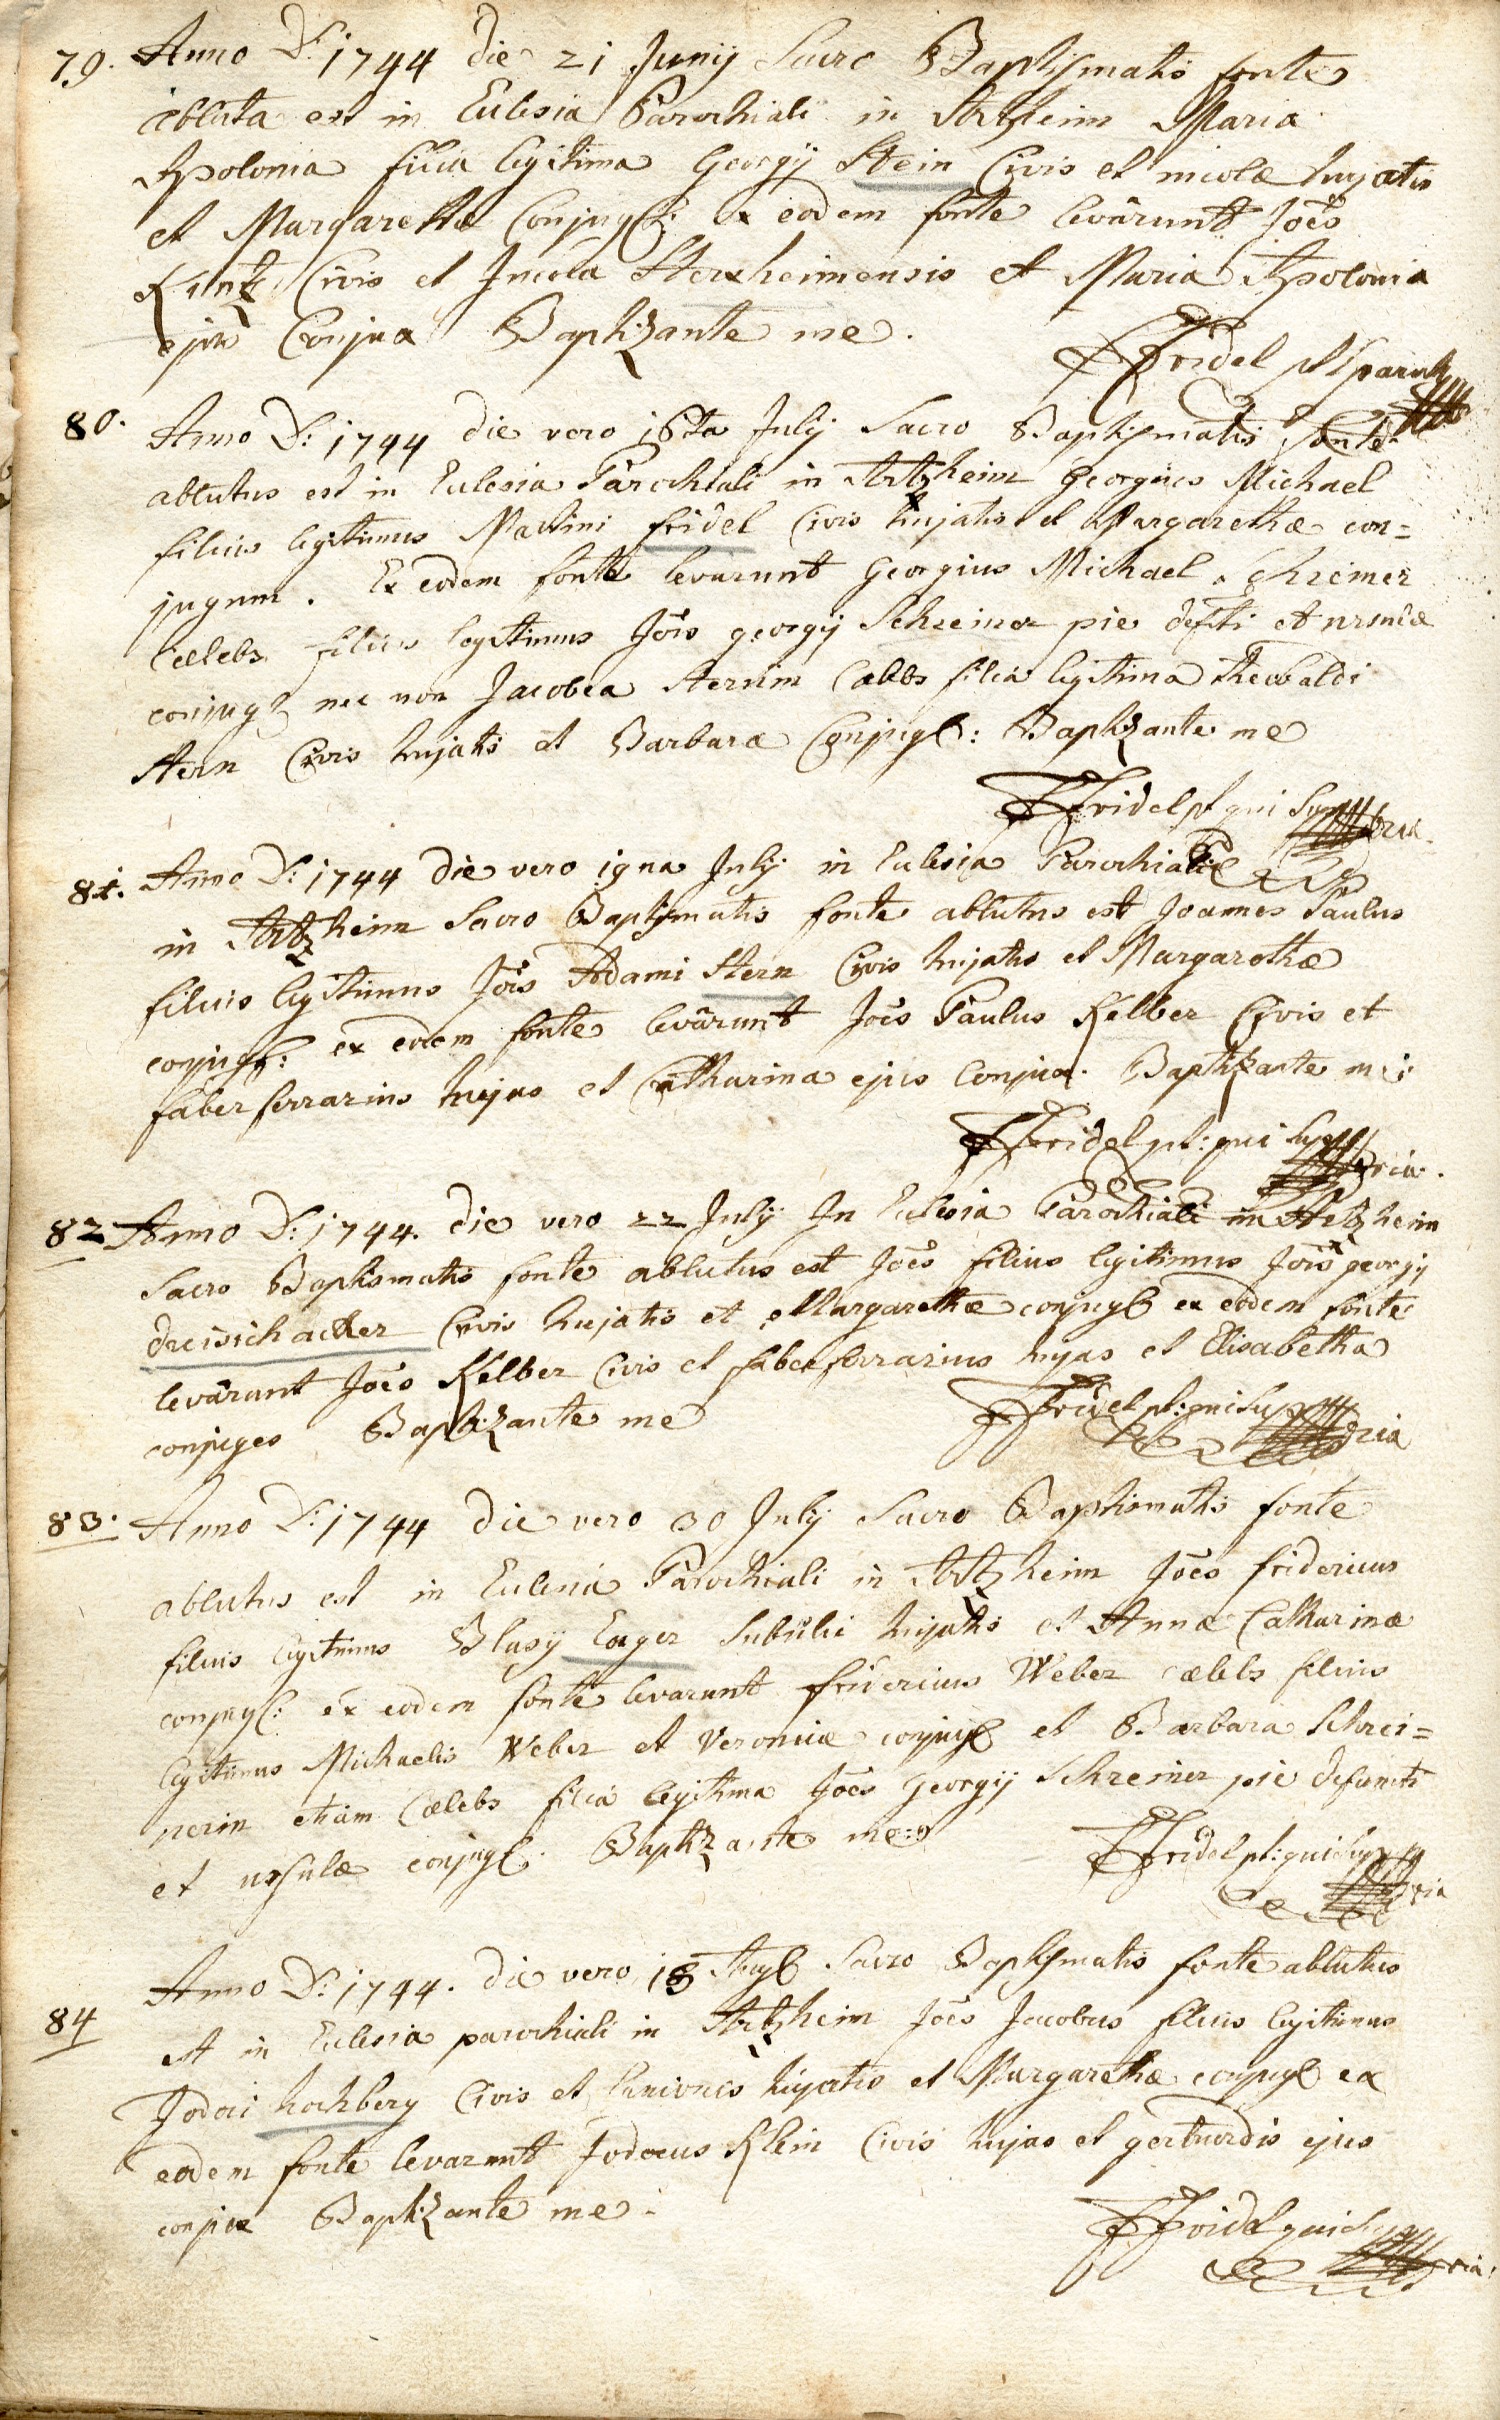 79. Anno D: 1744 die 21 Junij Sacro Baptismatis fonte
abluta est in Ecclesia Parochiali in Artzheim Maria
Apolonia filia legitima Georgij Stein Civis et incolæ hujatis
et Margarethæ Conjugū: ex eodem fonte levârunt Joēs
Kuntz Civis et Incola Herxheimensis et Maria Apolonia
ejus Conjux Baptizante me.
Fridel
80. Anno D: 1744 die vero 16ta Julij Sacro Baptismatis fonte
ablutus est in Ecclesia Parochiali in Artzheim Georgius Michael
filius legitimus Martini fridel Civis hujatis et Margarethæ con=
jugum. Ex eodem fonte levarunt Georgius Michael Schreiner
Cælebs filius legitimus Jōis georgij Schreiner pie defti et ursulæ
conjugū nec non Jacobea Sternin Cælebs filia legitima Theobaldi
Stern Civis hujatis et Barbaræ Conjugū: Baptizante me
Fridel pt qui supra
81. Anno D: 1744 die vero 19na Julij in Ecclesia Parochiali
in Artzheim Sacro Baptismatis fonte ablutus est Joannes Paulus
filius legitimus Jōis Adami Stern Civis hujatis et Margarethæ
conjugū: ex eodem fonte levârunt Joēs Paulus Kelber Civis et
faber ferrarius hujas et Catharina ejus Conjux. Baptizante me:
Fridel pt: qui supra
82 Anno D: 1744. die vero 22 Julij In Ecclesia Parochiali in Artzheim
Sacro Baptismatis fonte ablutus est Joēs filius legitimus Jōis georgij
dreisichacker Civis hujatis et Margarethæ conjugū ex eodem fonte
levârunt Joēs Kelber Civis et faber ferrarius hujas et Elisabetha
conjuges Baptizante me
Fridel pt: qui supra
83. Anno D: 1744 die vero 30 Julij Sacro Baptismatis fonte
ablutus est in Ecclesia Parochiali in Artzheim Joēs fridericus
filius legitimus Blasij Hujatis et Annæ Catharinæ
conjugū: ex eodem fonte levarunt fridericus Weber cælebs filius
legitimus Michaelis Weber et Veronicæ conjugū et Barbara Schrei=
nerin etiam Cælebs filia legitima Joēs Georgij Schreiner pie defuncti
et ursulæ conjugū. Baptizante me:
Fridel pt: qui supra
84 Anno D: 1744. die vero 18 Augū Sacro Baptismatis fonte ablutus
est in Ecclesia parochiali in Artzheim Joēs Jacobus filius legitimus
Jodoci hochberg Civis et hujatis et Margarethæ conjugū ex
eodem fonte levarunt Jodocus Klein Civis hujas et gertrudis ejus
conjux Baptizante me:
Fridel qui supra